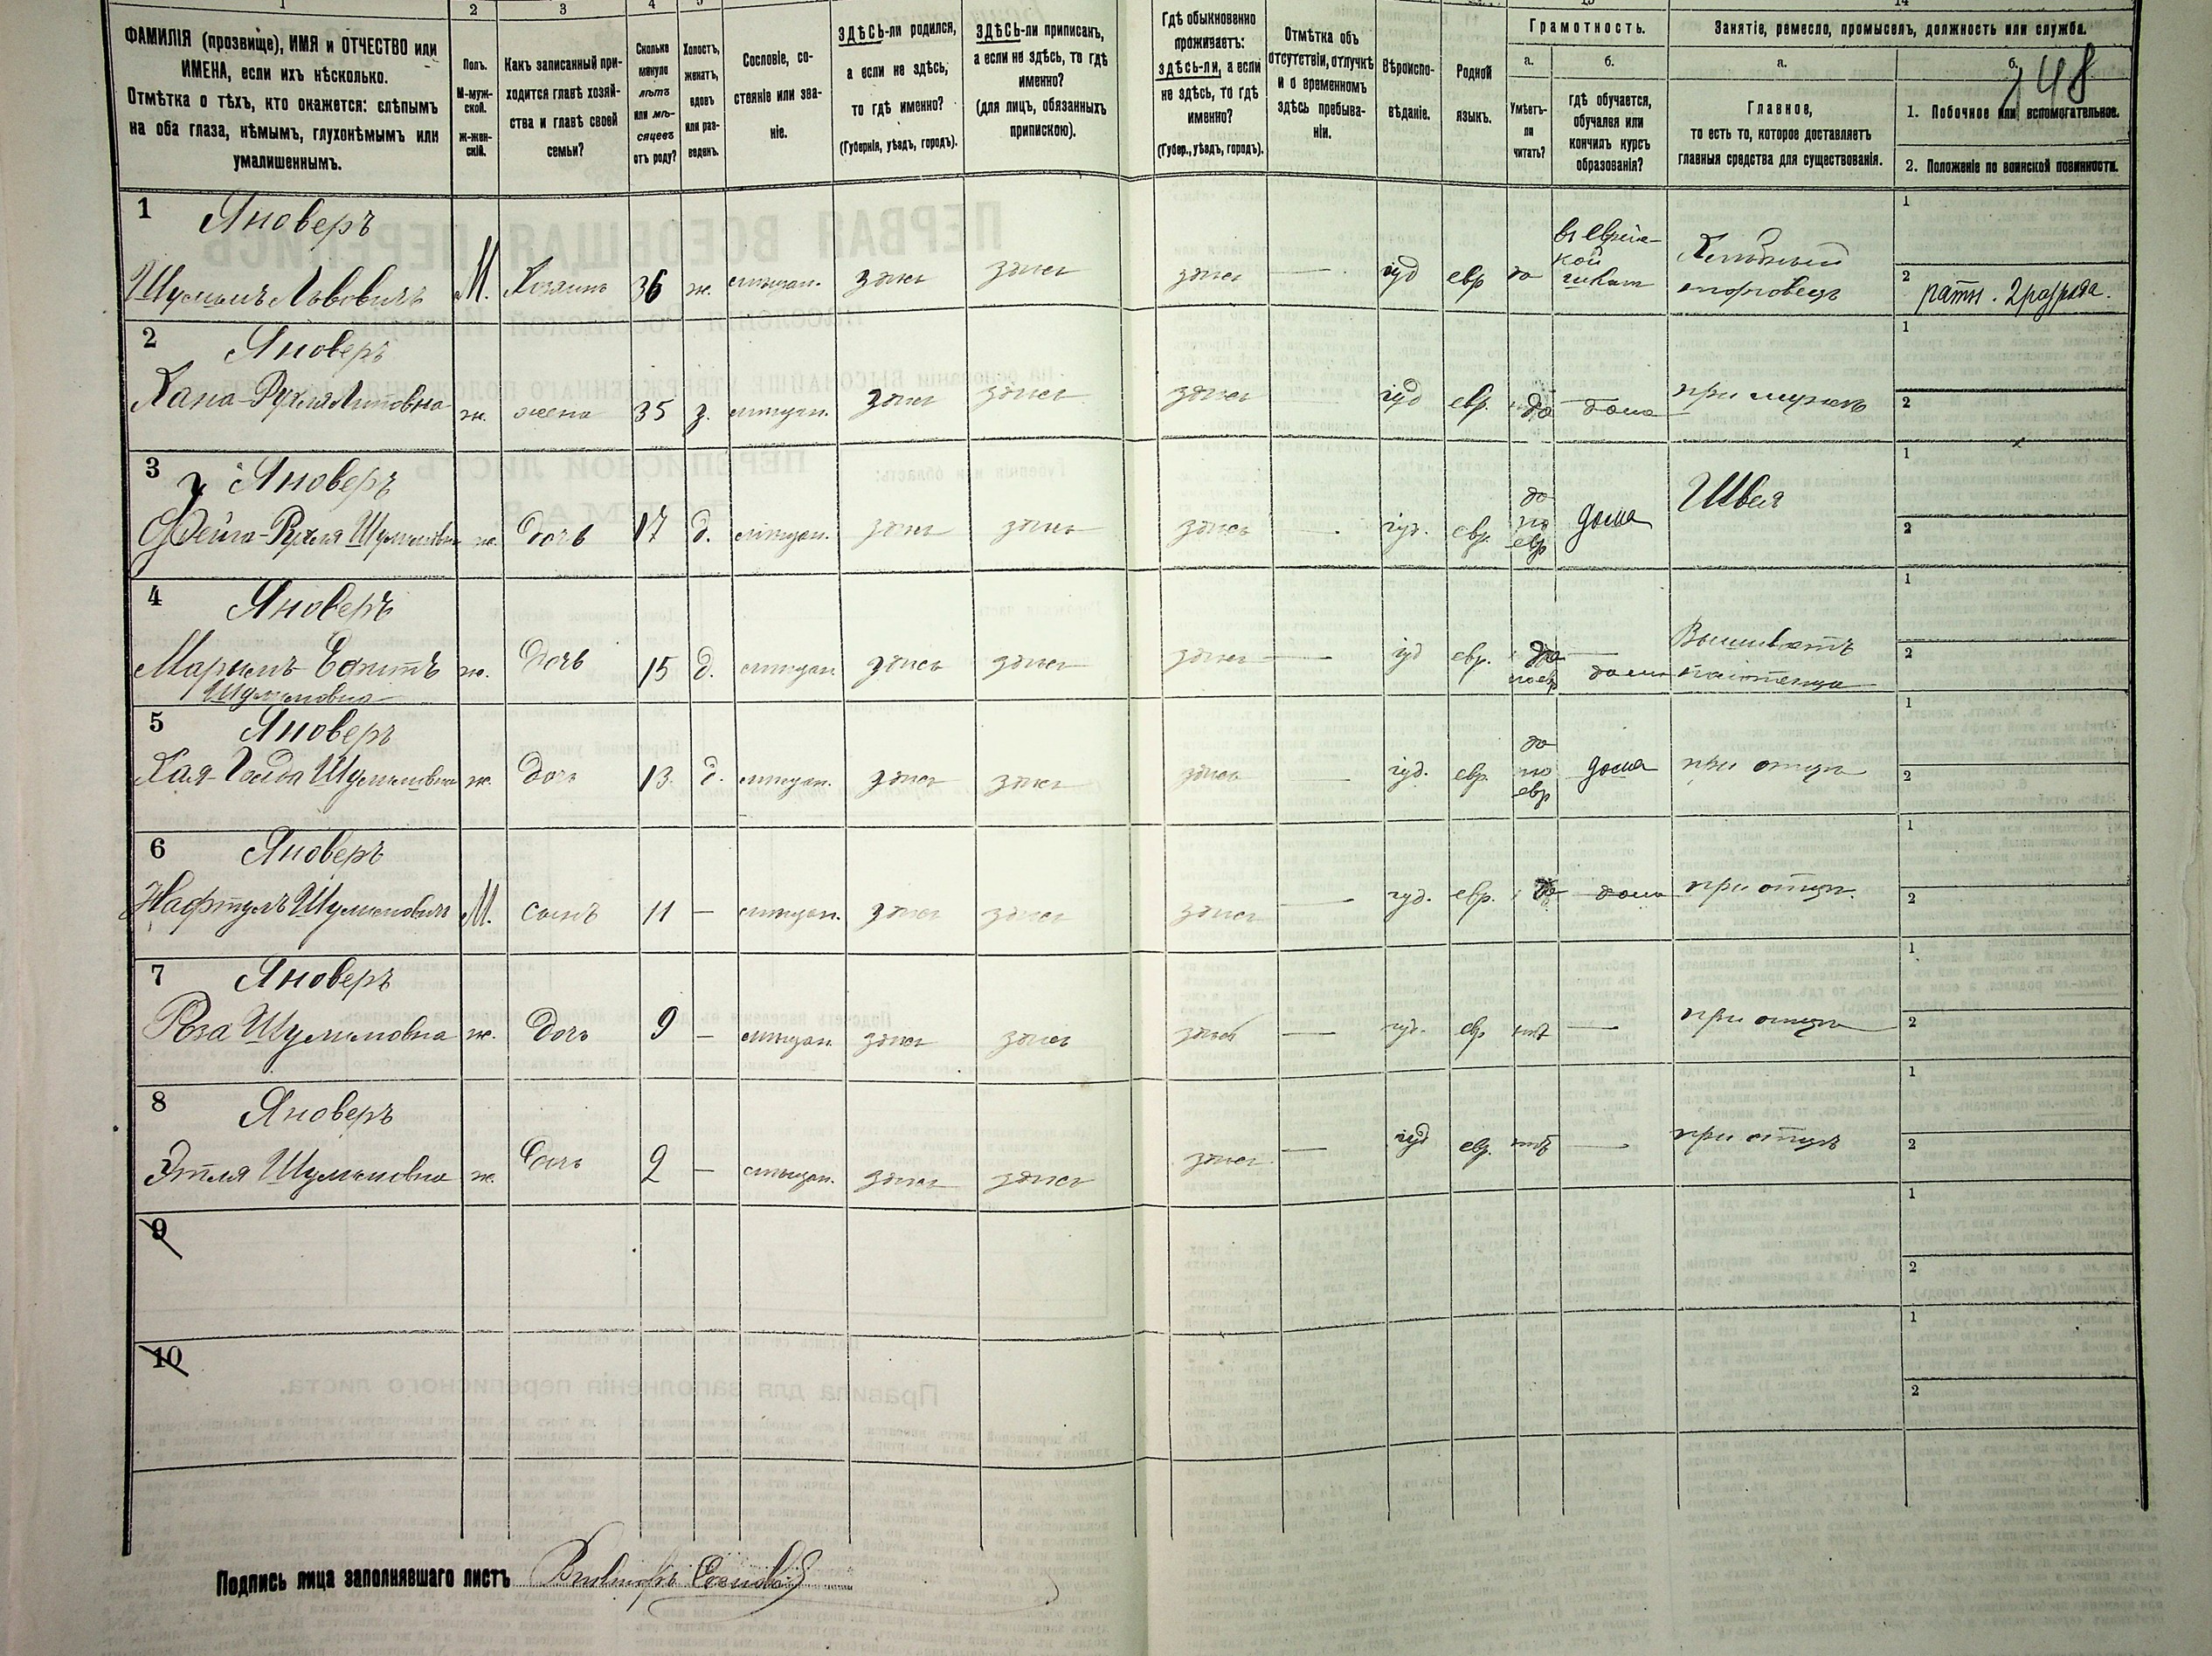 1 2 3 4 5 13 14
ФАМИЛІЯ (прозвище), ИМЯ и ОТЧЕСТВО или
ИМЕНА, если ихъ нѣсколько.
Отмѣтка о тѣхъ, кто окажется: слѣпымъ
на оба глаза, нѣмымъ, глухонѣмымъ или
умалишеннымъ.
Полъ.
М-муж-
ской.
Ж-жен-
скій.
Какъ записанный при-
ходится главѣ хозяй-
ства и главѣ своей
семьи?
Сколько
минуло
лѣтъ
или мѣ-
сяцевъ
отъ роду?
Холостъ,
женатъ,
вдовъ
или раз-
веденъ.
Сословіе, со-
стояніе или зва-
ніе.
ЗДѢСЬ-ли родился,
а если не здѣсь,
то гдѣ именно?
(Губернія, уѣздъ, городъ).
ЗДѢСЬ-ли приписанъ,
а если не здѣсь, то гдѣ
именно?
(для лицъ, обязанныхъ
припискою).
Гдѣ обыкновенно
проживаетъ:
здѣсь-ли, а если
не здѣсь, то гдѣ
именно?
(Губер., уѣздъ, городъ).
Отмѣтка объ
отсутствіи, отлучкѣ
и о временномъ
здѣсь пребыва-
ніи.
Вѣроиспо-
вѣданіе.
Родной
языкъ.
Грамотность.
а.
Умѣетъ-
ли
читать?
б.
гдѣ обучается,
обучался или
кончилъ курсъ
образованія?
Занятіе, ремесло, промыселъ, должность или служба.
а.
Главное,
то есть то, которое доставляетъ
главныя средства для существованія.
б.
148
1. Побочное или вспомогательное.
2. Положеніе по воинской повинности.
1 Яноверъ
Шулимъ Львовичъ М. Хозяинъ 36 ж. мѣщан. здѣсь здѣсь здѣсь — іуд евр да
2 ратн. 2 разряда.
2 Яноверъ
Хана-Рухля ж. жена 35 з. мѣщан. здѣсь здѣсь здѣсь іуд евр. да дома при мужѣ
3 Яноверъ
Фейга-Рухля Шулимовна ж. дочь 17 д. мѣщан. здѣсь здѣсь здѣсь — іуд. евр. да по евр дома Швея
4 Яноверъ
Шулимовна ж. дочь 15 д. мѣщан. здѣсь здѣсь здѣсь — іуд евр. да по евр дома Вышиваетъ
5 Яноверъ
Хая- Шулимовна ж. дочь 13 д. мѣщан. здѣсь здѣсь здѣсь — іуд. евр. да по евр дома при отцѣ
6 Яноверъ
Нафтулъ Шулимовичъ М. сынъ 11 — мѣщан. здѣсь здѣсь здѣсь — іуд. евр. да дома при отцѣ.
7 Яноверъ
Роза Шулимовна ж. дочь 9 — мѣщан. здѣсь здѣсь здѣсь — іуд. евр нѣт — при отцѣ
8 Яноверъ
Этля Шулимовна ж. дочь 2 — мѣщан. здѣсь здѣсь здѣсь — іуд евр. нѣтъ — при отцѣ
9
10
Подпись лица заполнявшаго листъ